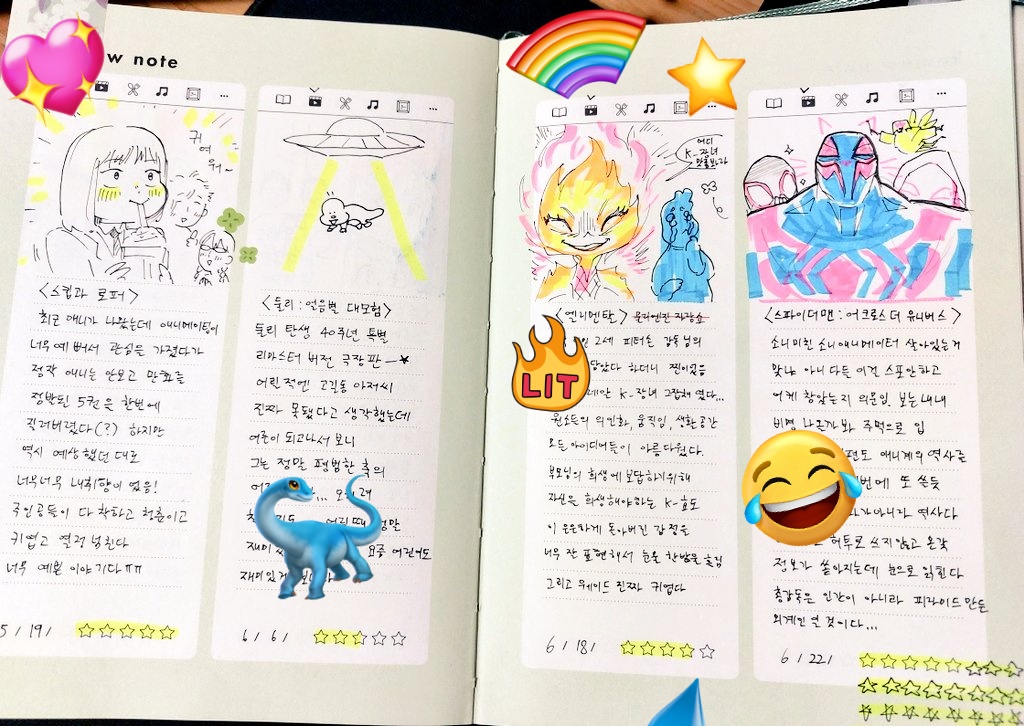 w note
귀여워~
<스킵과 로퍼>
최근 애니가 나왔는데 애니메이팅이
너무 예뻐서 관심을 가졌다가
정작 애니는 안보고 만화를
정발된 5권은 한번에
질러버렸다(?) 하지만
역시 예상했던 대로
너무너무 내취향이 었음!
주인공들이 다 착하고 청춘이고
귀엽고 열정 넘친다
너무 예쁜 이야기다ㅠㅠ
5/19/
<둘리: 얼음별 대모험>
둘리 탄생 40주년 특별
리마스터 버전 극장판
어린적엔 고길동 아저씨
진짜 못됐다고 생각했는데
어른이 되고나서 보니
그는 정말 평범한 축의
어
어릴때
재미
재미있게
6/6/
어디 K-장녀 맛좀봐라
<엘리멘탈> 물리엔진 자랑쇼
2세 피터손 감독님의
담았다 하더니 찐이었음
K-장녀 그잡채 였다...
원소들의 의인화, 움직임, 생활공간
모든 아이디어들이 아름다웠다.
부모님의 희생에 보답하기위해
자신을 희생해야하는 K-효도
이 은은하게 돌아버린 감정을
너무 잘 표현해서 눈물 한방울 흘림
그리고 웨이드 진짜 귀엽다
6/18/
LIT
<스파이더맨: 어크로스 더 유니버스>
소니 미친 소니애니메이터 살아있는거
맞냐 아니 다들 이걸 스포안하고
어케 참았는지 의문임. 보는내내
비명 나올까봐 주먹으로 입
편도 애니계의 역사를
번에 또 쓴듯
가아니라 역사다
허투로 쓰지않고 온갖
정보가 쏟아지는데 눈으로 읽힌다
총감독은 인간이 아니라 피라미드 만든
외계인 일 것이다...
6/22/